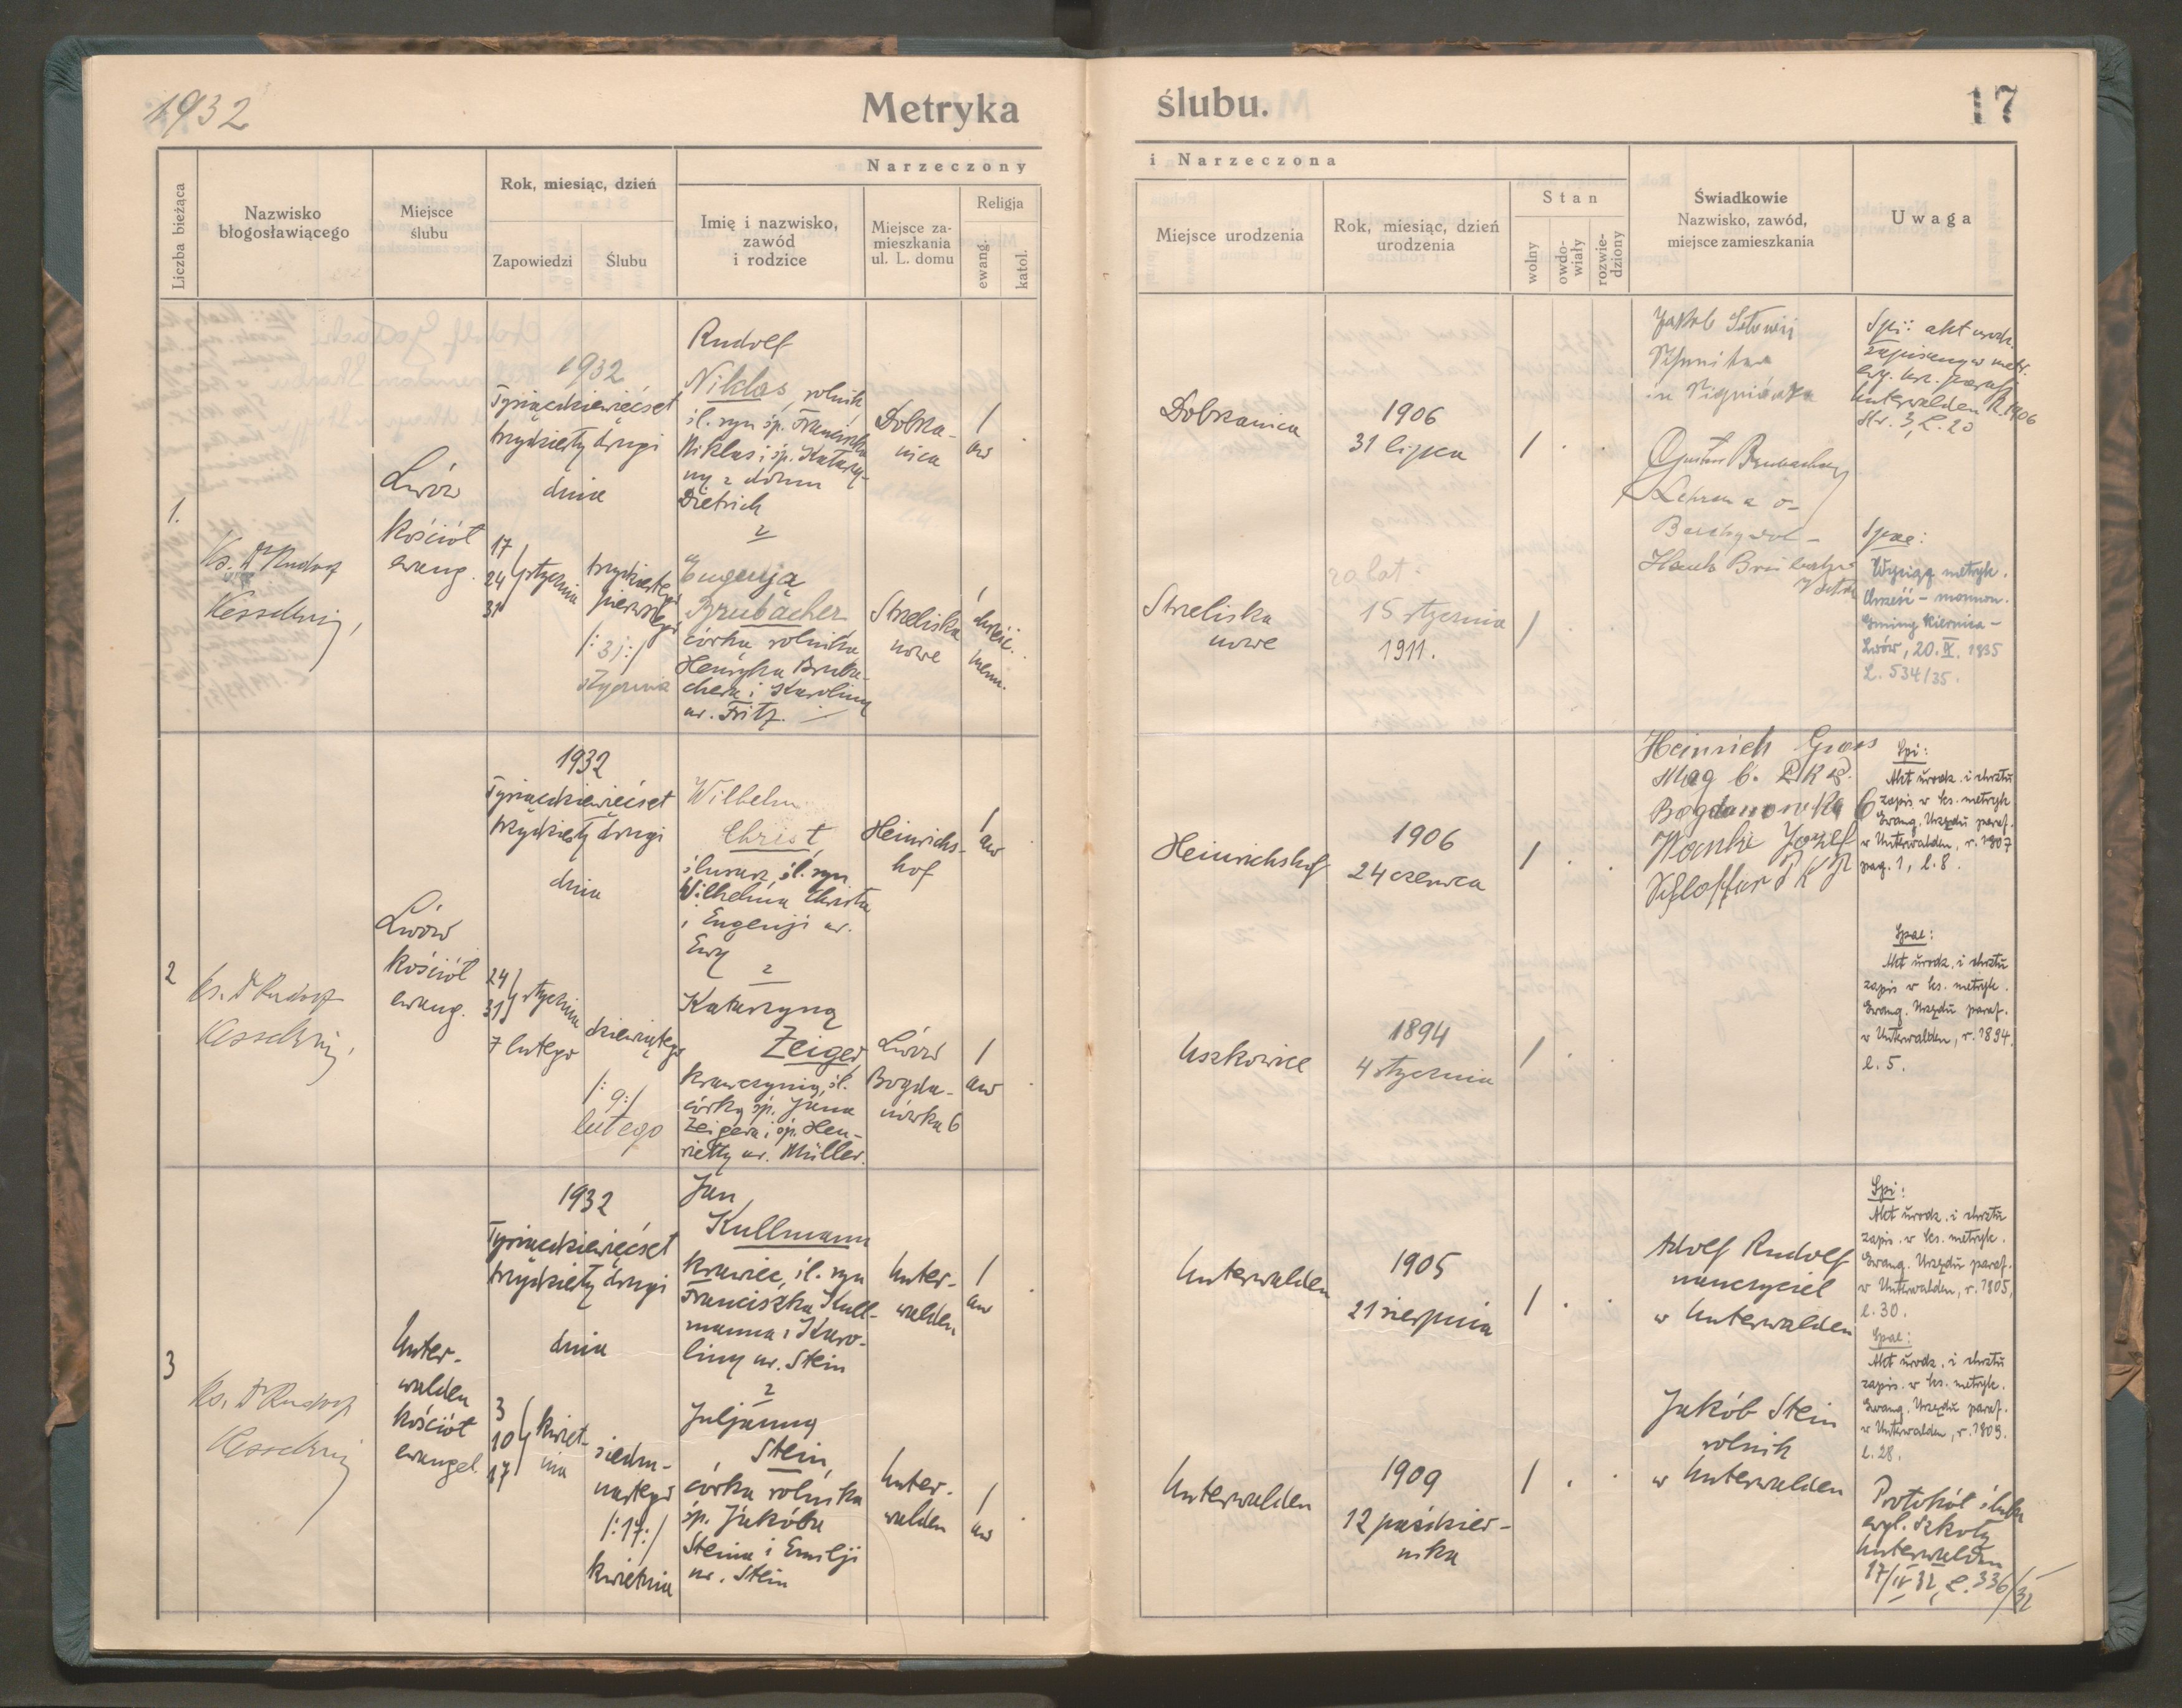 1932
Metryka ślubu.
17
Liczba bieżąca
Nazwisko
błogosławiącego
Miejsce
ślubu
Rok, miesiąc, dzień
Zapowiedzi
Ślubu
Narzeczony
Imię i nazwisko,
zawód
i rodzice
Miejsce za-
mieszkania
ul. L. domu
Religja
ewang.
katol.
i Narzeczona
Miejsce urodzenia
Rok, miesiąc, dzień
urodzenia
Stan
wolny
owdo-
wiały
rozwie-
dziony
Świadkowie
Nazwisko, zawód,
miejsce zamieszkania
Uwaga
1.
Ks. Dr Rudolf
Kesselring
Lwów
kościół
ewang.
1932
Tysiącdziewięćset
trzydziesty drugi
dnia
17
24 stycznia
31
trzydziestego
pierwszego
/:31:/
stycznia
Rudolf
Niklas, rolnik
śl. syn śp. Franciszka
Niklas i śp. Katarzy-
ny z domu
Dietrich
z
Eugenją
Brubacher
córka rolnika
Henryka Bruba-
chera i Karoliny
ur. Fritz.
Dobrza-
nica
/
aw
Strzeliska
nowe
/
chrześc.
menn.
Dobrzanica
1906
31 lipca
/
Strzeliska
nowe
15 stycznia
1911.
/
Jakob
Gustav Brubacher
Spi: akt urodz.
zapisany w metr.
Unterwalden R. 1906
Str. 3, L. 20
Spae:
Wyciąg metryk.
Chrześć - mennon.
Gminy Kiernica -
Lwów, 20.IX.1935
L. 534/35.
2
Ks. Dr Rudolf
Kesselring
Lwów
kościół
ewang.
1932
Tysiącdziewięćset
trzydziesty drugi
dnia
24
31 stycznia
7 lutego
dziewiątego
/:9:/
lutego
Wilhelm
Christ,
ślusarz, śl. syn
Wilhelma Christa
i Eugenji ur.
Ewy
z
Katarzyną
Zeiger,
krawczynią, śl.
córką śp. Jana
Zeigera i śp. Hen-
rietty ur. Müller.
Heinrichs-
hof
/
aw
Lwów
Bogda-
nówka 6
/
aw
Heinrichshof
1906
24 czerwca
/
Uszkowice
1894
4 stycznia
/
Heinrich Gross
Mag b. P.K.P.
Bogdanowka 6
Józef
Schlosser P K P
Spi:
Akt urodz. i chrztu
zapis. w ks. metryk.
Ewang. Urzędu paraf.
w Unterwalden, r. 1907
pag. 1, l. 8.
Spae:
Akt urodz. i chrztu
zapis. w ks. metryk.
Ewang. Urzędu paraf.
w Unterwalden, r. 1894.
l. 5.
3
Ks. Dr Rudolf
Kesselring
Unter-
walden
kościół
ewangel.
1932
Tysiącdziewięćset
trzydziesty drugi
dnia
3
10 kwiet-
17 nia
siedm-
nastego
/:17:/
kwietnia
Jan
Kullmann
krawiec, śl. syn
Franciszka Kull-
manna i Karo-
liny ur. Stein
z
Juljanną
Stein,
córka rolnika
śp. Jakóba
Steina i Emilji
ur. Stein
Unter-
walden
/
aw
Unter-
walden
/
aw
Unterwalden
1905
21 sierpnia
/
Unterwalden
1909
12 paździer-
nika
/
Adolf Rudolf
nauczyciel
w Unterwalden
Jakób Stein
rolnik
w Unterwalden
Spi:
Akt urodz. i chrztu
zapis. w ks. metryk.
Ewang. Urzędu paraf.
w Unterwalden, r. 1905,
l. 30.
Spae:
Akt urodz. i chrztu
zapis. w ks. metryk.
Ewang. Urzędu paraf.
w Unterwalden, r. 1909.
l. 28.
Protokół ślubu
Szkoły
Unterwalden
17/IV 32, L. 336/32